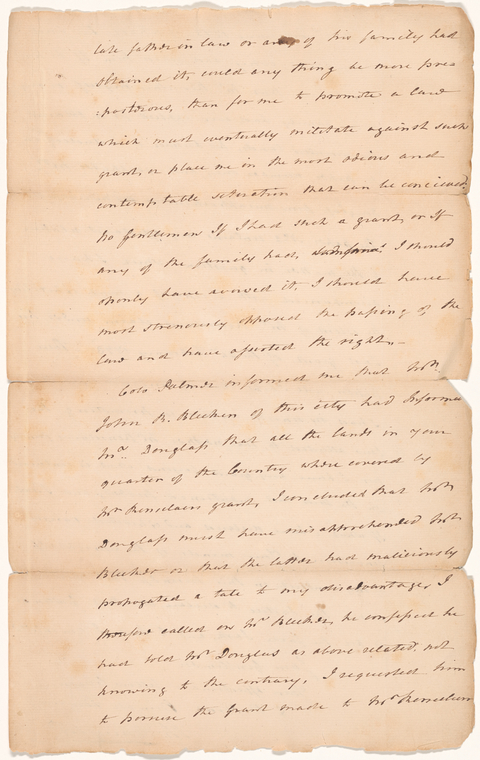 late father in law or any of his family had
obtained it, could any thing be more prea
:posterous, than for me to promote a law
which must eventually militate against such
grant, or place me in the most odious and
contemptable situation that can be conceived.
No Gentlemen If I had such a grant, or If
any of the family had, I should
openly have avowed it, I should have
most strenously opposed the passing of the
law and have asserted the right,
Colo Palmer informed me that Mr
John R. Bleeker of this city had Informed
Mr. Douglass that all the lands in your
quarter of the Country where covered by
Mr Renselaers grant, I concluded that Mr
Douglass must have misapprehended Mr
Bleeker or that the latter had maliciously
propogated a tale to my disadvantage, I
therefore called on Mr Bleeker, he confessed he
had told Mr Douglass as above related, not
knowing to the contrary, I requested him
to peruse the Grant made to Mr Renselaer